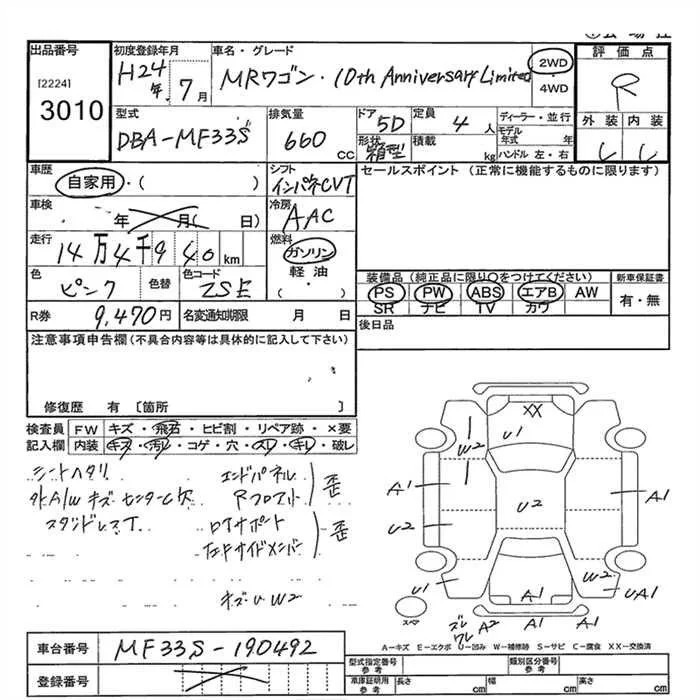 会場控
出品番号
[2224]
3010
初度登録年月
H24年 7月
車名・グレード
MRワゴン・10th Anniversary Limited
2WD
・
4WD
評価点
R
外装 内装
型式
DBA-MF33S
排気量
660 CC
ドア
5D
形状
箱型
定員
4 人
積載
kg
ディーラー・並行
モデル年式 年
ハンドル 左・右
車歴
自家用・( )
シフト
インパネCVT
セールスポイント (正常に機能するものに限ります)
車検
年 月( 日)
冷房
AAC
走行
14万4千940 km
燃料
ガソリン
軽油
( ・ )
色
ピンク
色替
色コード
ZSE
装備品(純正品に限り○をつけてください)
PS PW ABS エアB AW
SR ナビ TV カワ
新車保証書
有・無
R券
9,470円
名変通知期限 月 日
後日品
注意事項申告欄(不具合内容等は具体的に記入して下さい)
修復歴 有 〔箇所 〕
検査員
記入欄
FW キズ・飛石・ヒビ割・リペア跡・×要
内装 キズ・汚レ・コゲ・穴・スレ・キレ・破レ
シートヘタリ
外A/W キズ センターC欠
スタッドレスT
エンドパネル
Rフロアー
歪
キズ・U W2
XX
U1
W2
A1
A1
U2
U2
A1
U1
W2
UA1
A1
スペア
A2
A1
A1
A-キズ E-エクボ U-凹み W-補修跡 S-サビ C-腐食 XX-交換済
車台番号
MF33S-190492
登録番号
型式指定番号
参考
類別区分番号
参考
車庫証明用
参考
長さ cm
幅 cm
高さ cm